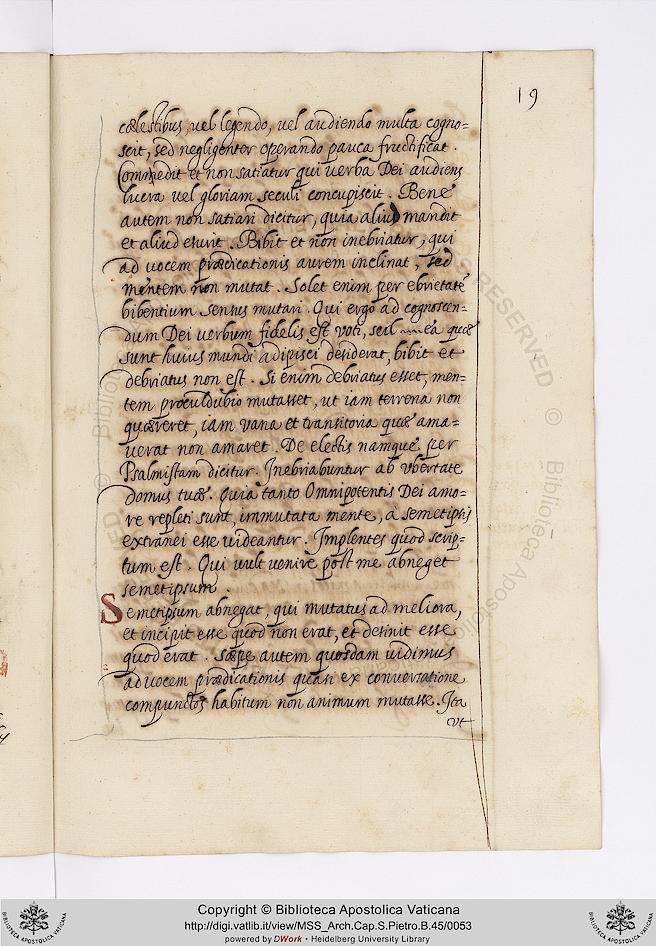 19
cælestibus, vel legendo, vel audiendo multa cogno=
scit, sed negligenter operando pauca fructificat.
Commedit et non satiatur qui verba Dei audiens
lucra vel gloriam seculi concupiscit. Bene
autem non satiari dicitur, quia aliud mandit
et aliud esurit. Bibit et non inebriatur, qui
ad vocem prædicationis aurem inclinat, sed
mentem non mutat. Solet enim per ebrietatē
bibentium sensus mutari. Qui ergo ad cognoscen=
dum Dei verbum fidelis est voti, sed ea quæ
sunt huius mundi adipisci desiderat, bibit et
debriatus non est. Si enim debriatus esset, men=
tem proculdubio mutasset, ut iam terrena non
quæreret, iam vana et transitoria quæ ama=
verat non amaret. De electis namque per
Psalmistam dicitur. Inebriabuntur ab ubertate
domus tuæ. Quia tanto Omnipotentis Dei amo=
re repleti sunt, immutata mente, à semetipsis
extranei esse videantur. Implentes quod scrip=
tum est. Qui vult venire post me abneget
semetipsum.
Semetipsum abnegat, qui mutatus ad meliora,
et incipit esse quod non erat, et desinit esse
quod erat. Sæpe autem quosdam vidimus
ad vocem prædicationis quasi ex conversatione
compunctos habitum non animum mutasse. Ita
ut
Copyright © Biblioteca Apostolica Vaticana
http://digi.vatlib.it/view/MSS_Arch.Cap.S.Pietro.B.45/0053
powered by DWork • Heidelberg University Library